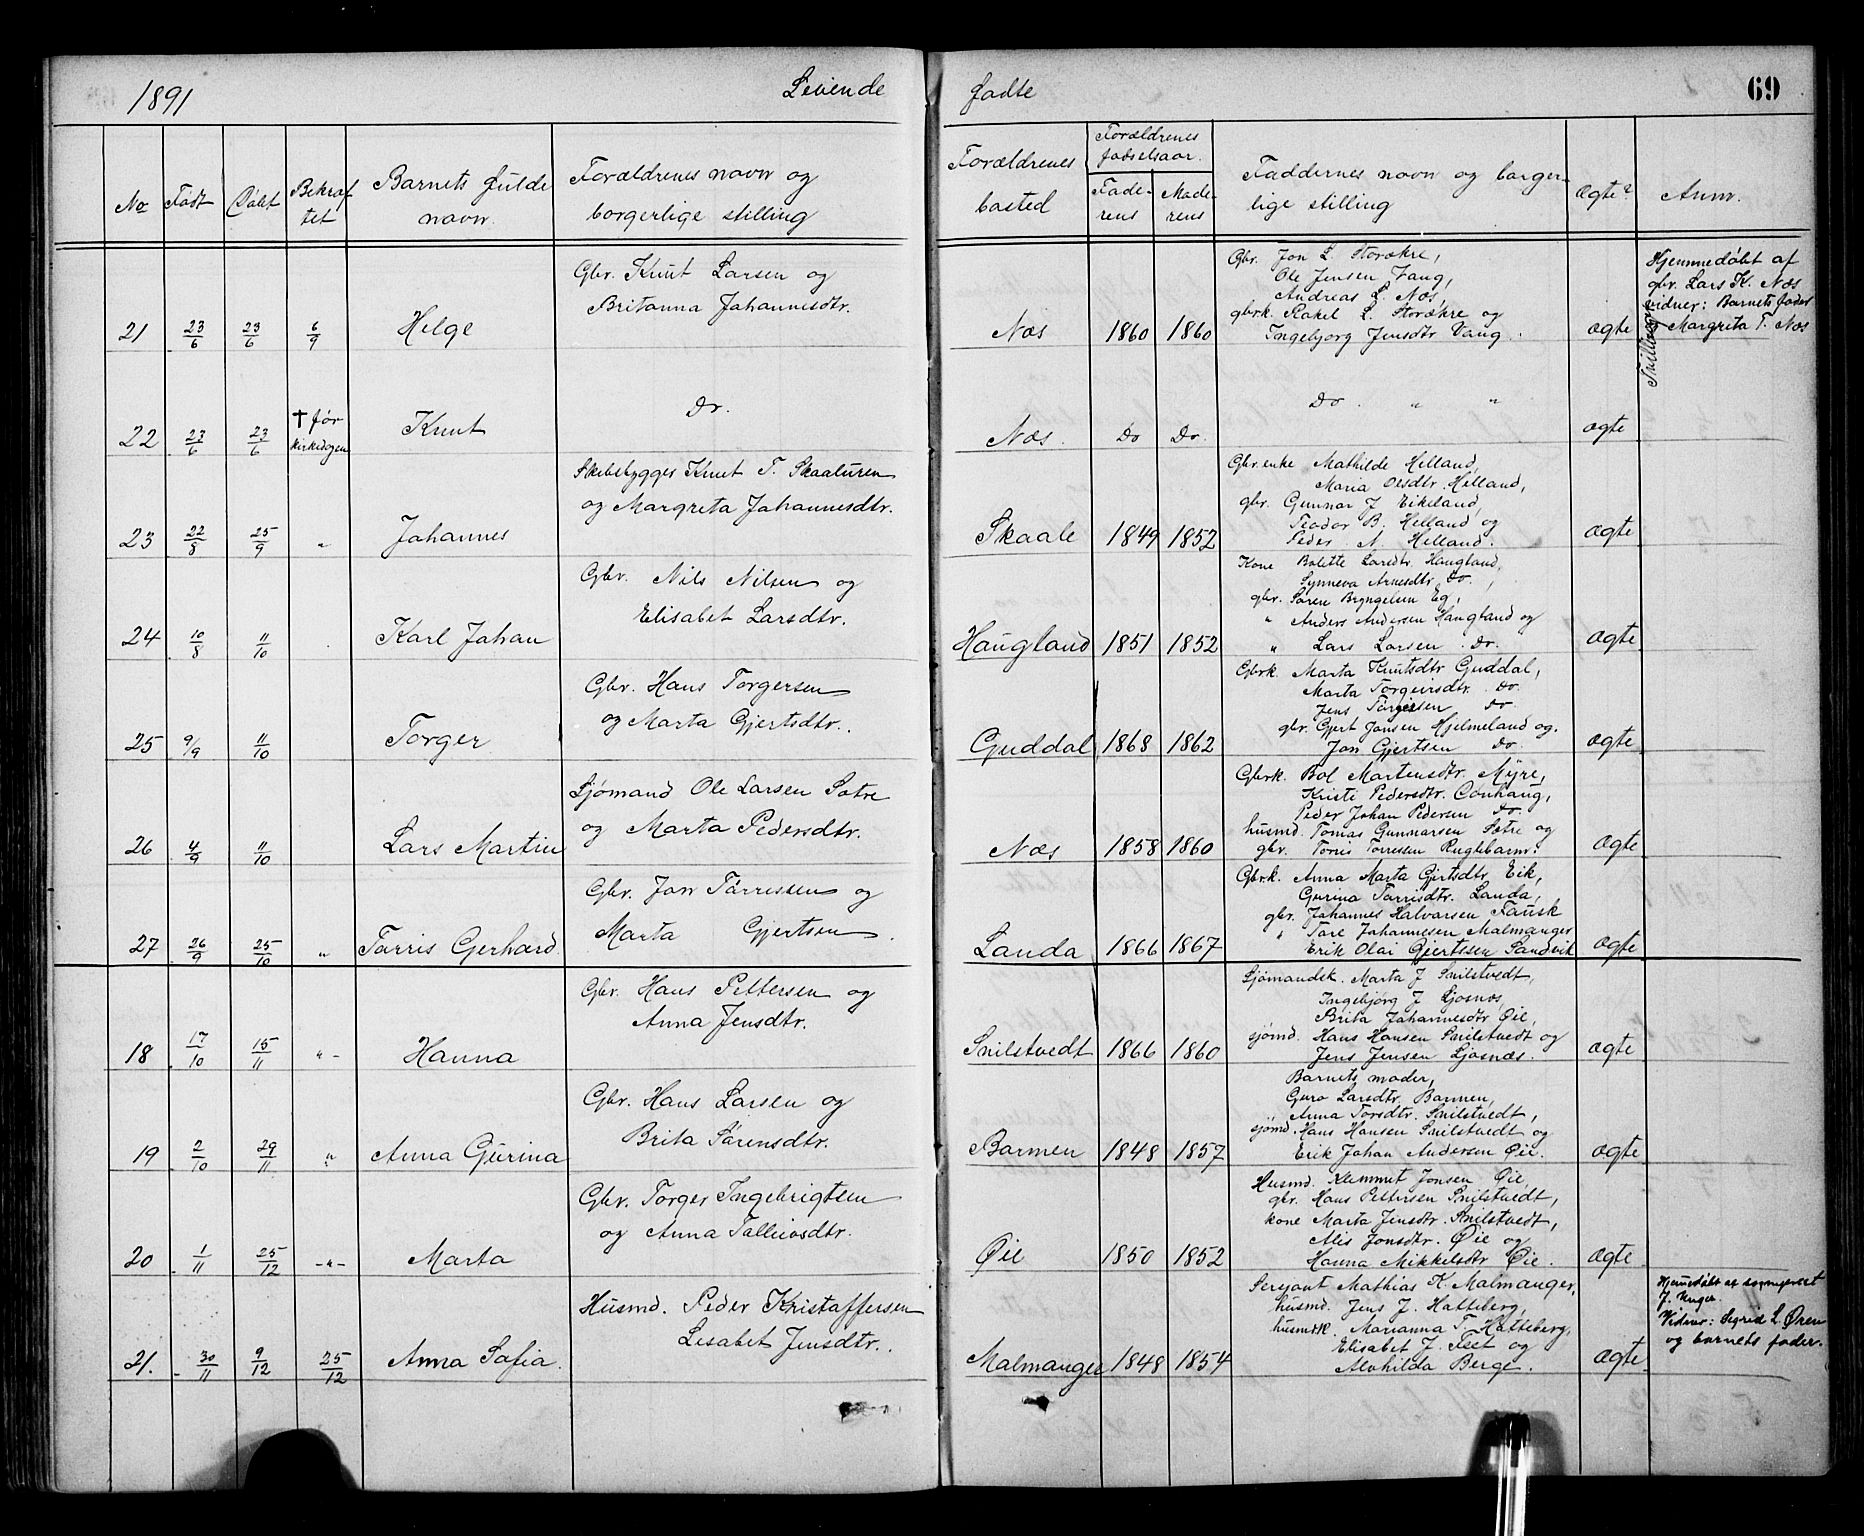 1891 Levende fødte 69
No Født Døbt Bekræftet Barnets fulde navn. Forældrenes navn og borgerlige stilling Forældrenes bosted Forældrenes fødselsaar. Faderens Moderens Faddernes navn og borgerlige stilling Ægte? Anm.
21 23/6 23/6 6/9 Helge Gbr. Knut Larsen og
Britanna Johannesdtr. Næs 1860 1860
Gbr. Jon L. Storækre,
Ole Jensen Vang,
Andreas L. Næs,
gbrk. Rakel L. Storækre og
Ingebjorg Jensdtr Vang.
ægte
Hjemmedøbt af
gbr. Lars K. Næs
vidner: Barnets fader
Margrita T. Næs
Tvillinger
22 23/6 23/6 † før kirkedagen Knut Do. Næs. Do Do. Do. " " ægte
23 22/8 25/9 " Johannes Skibsbygger Knut T. Skaaluren
og Margreta Johannesdtr. Skaale 1849 1852
Gbr.enke Mathilde Helland,
Maria Olsdtr. Helland,
gbr. Gunnar J Eikeland,
Teodor B. Helland og
Peder N. Helland.
ægte
24 10/8 11/10 Karl Johan Gbr. Nils Nilsen og
Elisabet Larsdtr. Haugland 1851 1852
Kone Bolette Larsdtr. Haugland,
Synneva Arnesdtr. Do.,
gbr. Søren Bryngelsen Eg,
" Anders Andersen Haugland og
" Lars Larsen. Do.
ægte
25 9/9 11/10 Torger Gbr. Hans Torgersen
og Marta Gjertsdtr. Guddal 1868 1862
Gbrk. Marta Knutsdtr Guddal,
Marta Torgeirsdtr. Do.
Jens Torgersen Do.
gbr. Gjert Jonsen Hjelmeland og
Jon Gjertsen Do.
ægte
26 4/9 11/10 Lars Martin Sjømand Ole Larsen Sætre
og Marta Pedersdtr. Næs 1858 1860
Gbrk. Bol Martensdtr. Myre,
Kristi Pedersdtr.
Peder Johan Pedersen Do.
husmd. Tomas Gunnarsen Sætre og
gbr. Torris Torresen
ægte
27 26/9 25/10 " Torris Gerhard Gbr. Jon Torressen og
Marta Gjertsen. Landa 1866 1867
Gbrk. Anna Marta Gjertsdtr. Eik,
Gurina Torrisdtr. Landa,
gbr. Johannes Halvorsen Fausk
" Tore Johannesen Malmanger
Erik Olai Gjertssen Sandvik
ægte
18 17/10 15/11 " - Hanna Gbr. Hans Pettersen og
Anna Jensdtr. Snilstvedt 1866 1860
Sjømandsk. Marta J Snilstvedt,
Ingebjørg J Ljosnæs,
Brita Johannesdtr Øie,
sjømd. Hans Hansen Snilstvedt og
Jens Jensen Ljosnæs.
ægte
19 2/10 29/11 " Anna Gurina Gbr. Hans Larsen og
Brita Sørensdtr. Barmen 1848 1857
Barnets moder,
Guro Larsdtr. Barmen,
Anna Torsdtr. Snilstvedt,
sjømd. Hans Hansen Snilstvedt og
Erik Johan Andersen Øie.
ægte
20 1/11 25/12 -"- Marta Gbr. Torger Ingebrigtsen
og Anna Tolleivsdtr. Øie 1850 1852
Husmd. Klemmet Jonsen Øie,
gbr. Hans Pettersen Snilstvedt,
kone Marta Jensdtr. Snilstvedt,
Alis Jonsdtr. Øie og
Hanna Mikkelsdtr Øie.
ægte
21. 30/11 9/12 25/12 Anna Sofia. Husmd. Peder Kristoffersen
Lisabet Jensdtr. Malmanger 1848 1854
Sersjant Mathias K. Malmanger,
husmd. Jens J. Hatteberg,
husmdk. Marianna T. Hatteberg,
Elisabet J. Tset og
Alvhilda Berge.
ægte
Hjemedøbt af sogneprest
J. Unger.
Vidner: Sigrid L. Øren
og barnets fader.